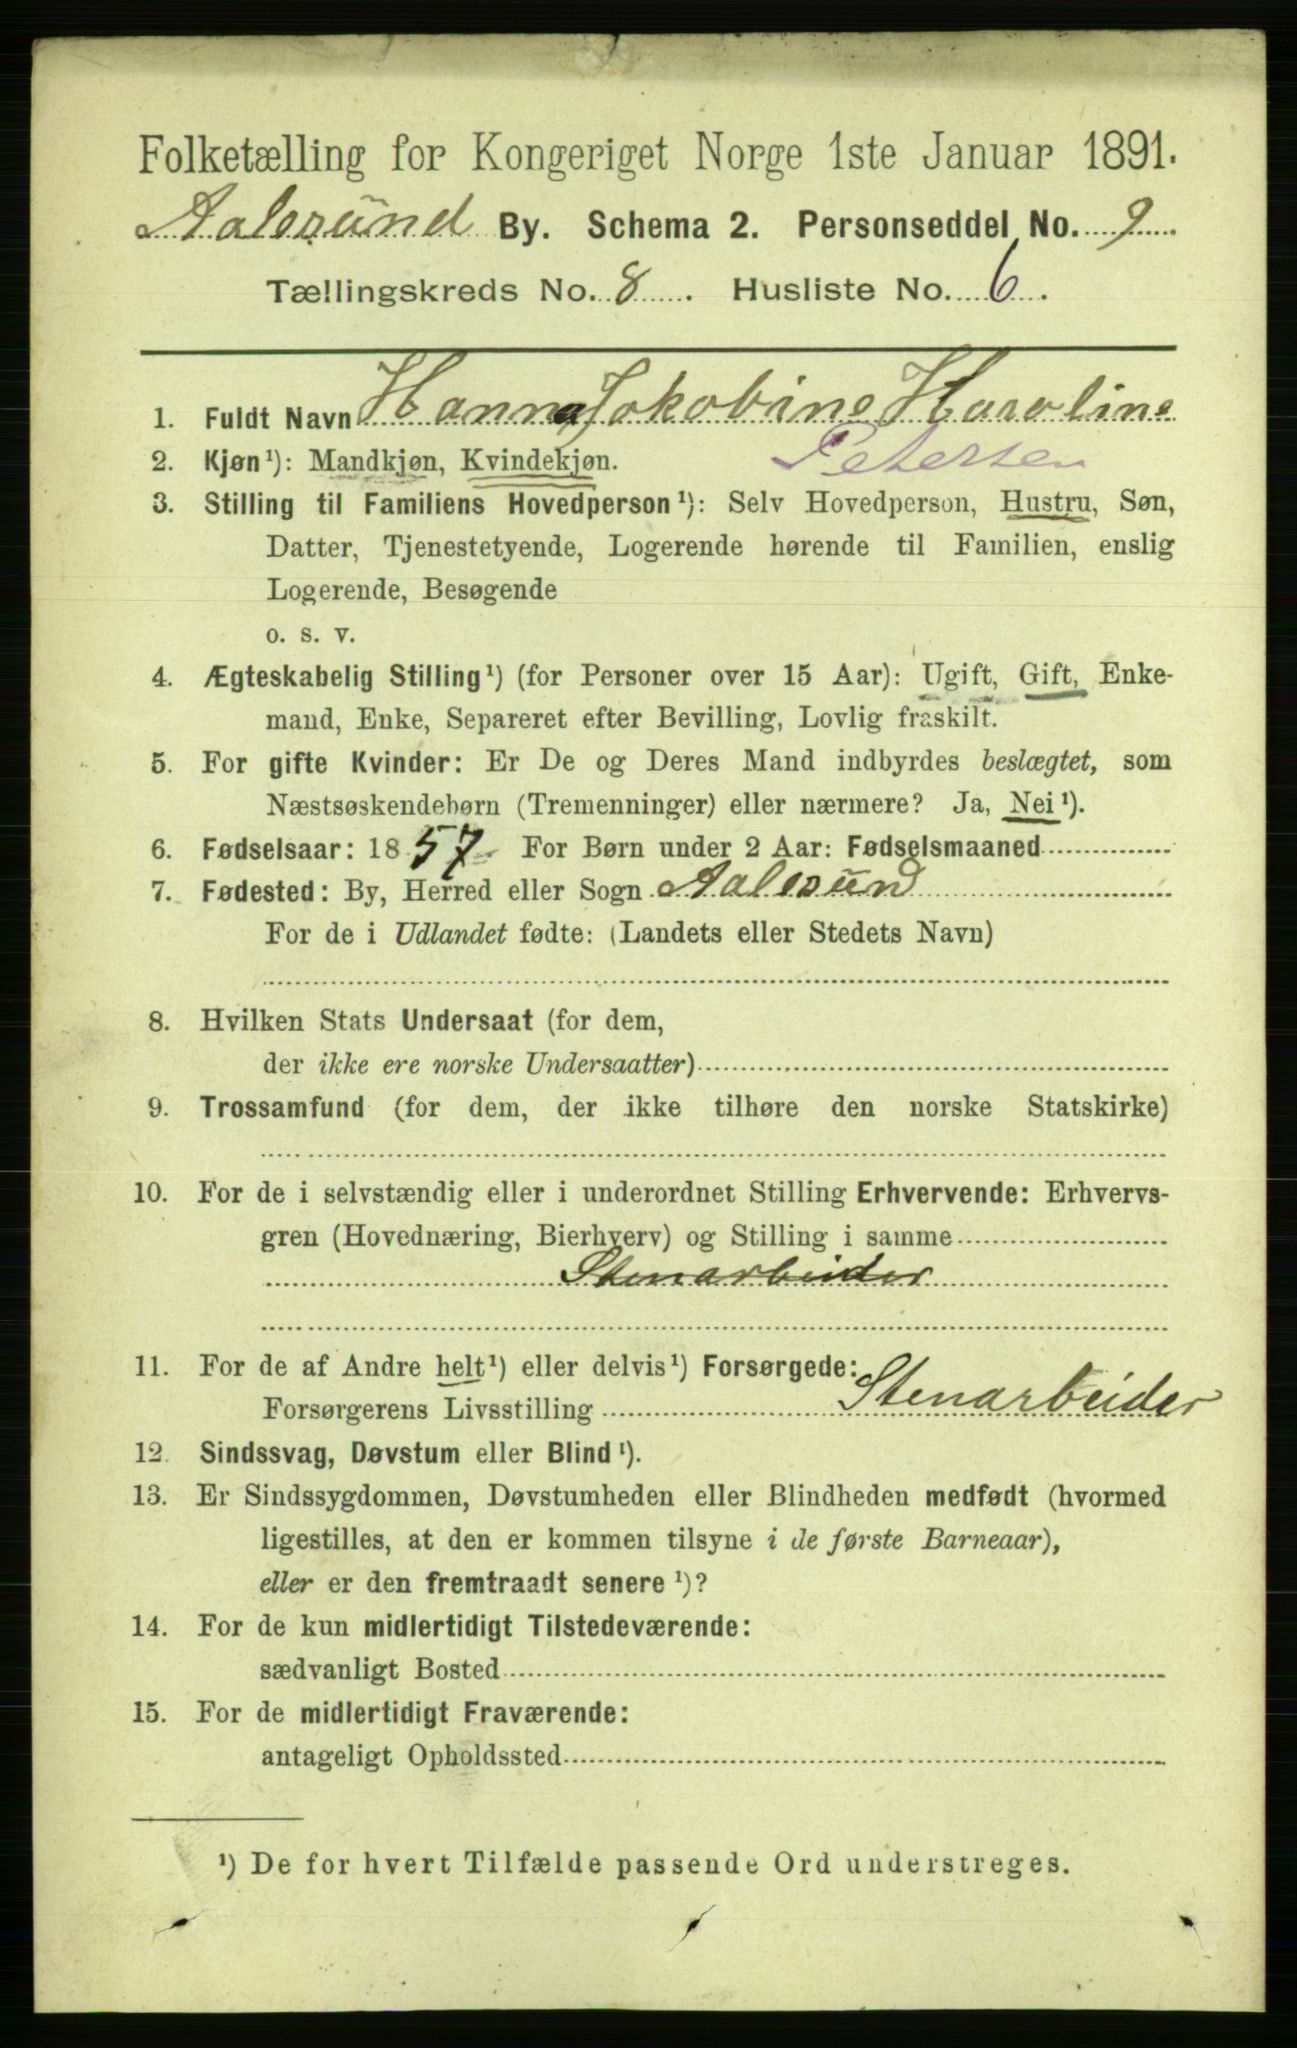 Folketælling for Kongeriget Norge 1ste Januar 1891.
Aalesund By. Schema 2. Personseddel No. 9
Tællingskreds No. 8. Husliste No. 6.
1. Fuldt Navn Hanna Jokobine Haroline
Petersen
2. Kjøn¹): Mandkjøn, Kvindekjøn.
3. Stilling til Familiens Hovedperson¹): Selv Hovedperson, Hustru, Søn,
Datter, Tjenestetyende, Logerende hørende til Familien, enslig
Logerende, Besøgende
o. s. v.
4. Ægteskabelig Stilling¹) (for Personer over 15 Aar): Ugift, Gift, Enke-
mand, Enke, Separeret efter Bevilling, Lovlig fraskilt.
5. For gifte Kvinder: Er De og Deres Mand indbyrdes beslægtet, som
Næstsøskendebørn (Tremenninger) eller nærmere? Ja, Nei¹).
6. Fødselsaar: 1857. For Børn under 2 Aar: Fødselsmaaned
7. Fødested: By, Herred eller Sogn Aalesund
For de i Udlandet fødte: (Landets eller Stedets Navn)
8. Hvilken Stats Undersaat (for dem,
der ikke ere norske Undersaatter)
9. Trossamfund (for dem, der ikke tilhøre den norske Statskirke)
10. For de i selvstændig eller i underordnet Stilling Erhvervende: Erhvervs-
gren (Hovednæring, Bierhverv) og Stilling i samme
Stenarbeider
11. For de af Andre helt¹) eller delvis¹) Forsørgede:
Forsørgerens Livsstilling Stenarbeider
12. Sindssvag, Døvstum eller Blind¹).
13. Er Sindssygdommen, Døvstumheden eller Blindheden medfødt (hvormed
ligestilles, at den er kommen tilsyne i de første Barneaar),
eller er den fremtraadt senere¹)?
14. For de kun midlertidigt Tilstedeværende:
sædvanligt Bosted
15. For de midlertidigt Fraværende:
antageligt Opholdssted
¹) De for hvert Tilfælde passende Ord understreges.